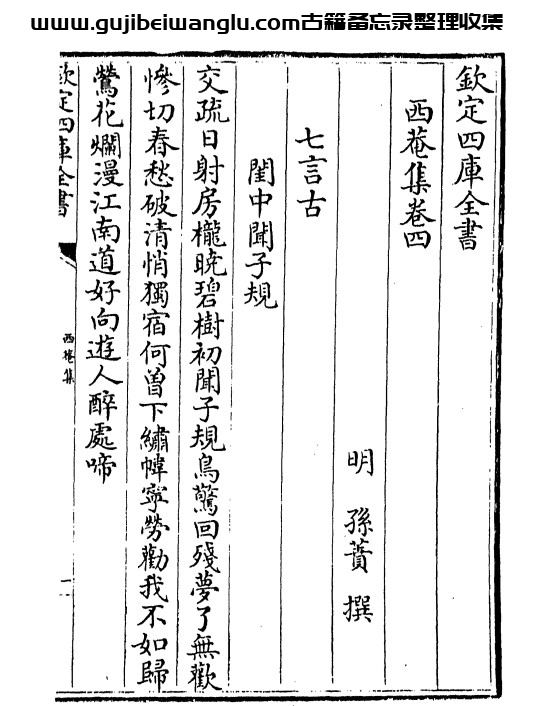 www.gujibeiwanglu.com古籍备忘录整理收集
欽定四庫全書
西菴集卷四
明 孫蕡 撰
七言古
閨中聞子規
交疏日射房櫳晚碧樹初聞子規鳥驚回殘夢了無歡
慘切春愁破清悄獨宿何曾下繡幃寧勞勸我不如歸
鶯花爛漫江南道好向遊人醉處啼
欽定四庫全書
西菴集
一